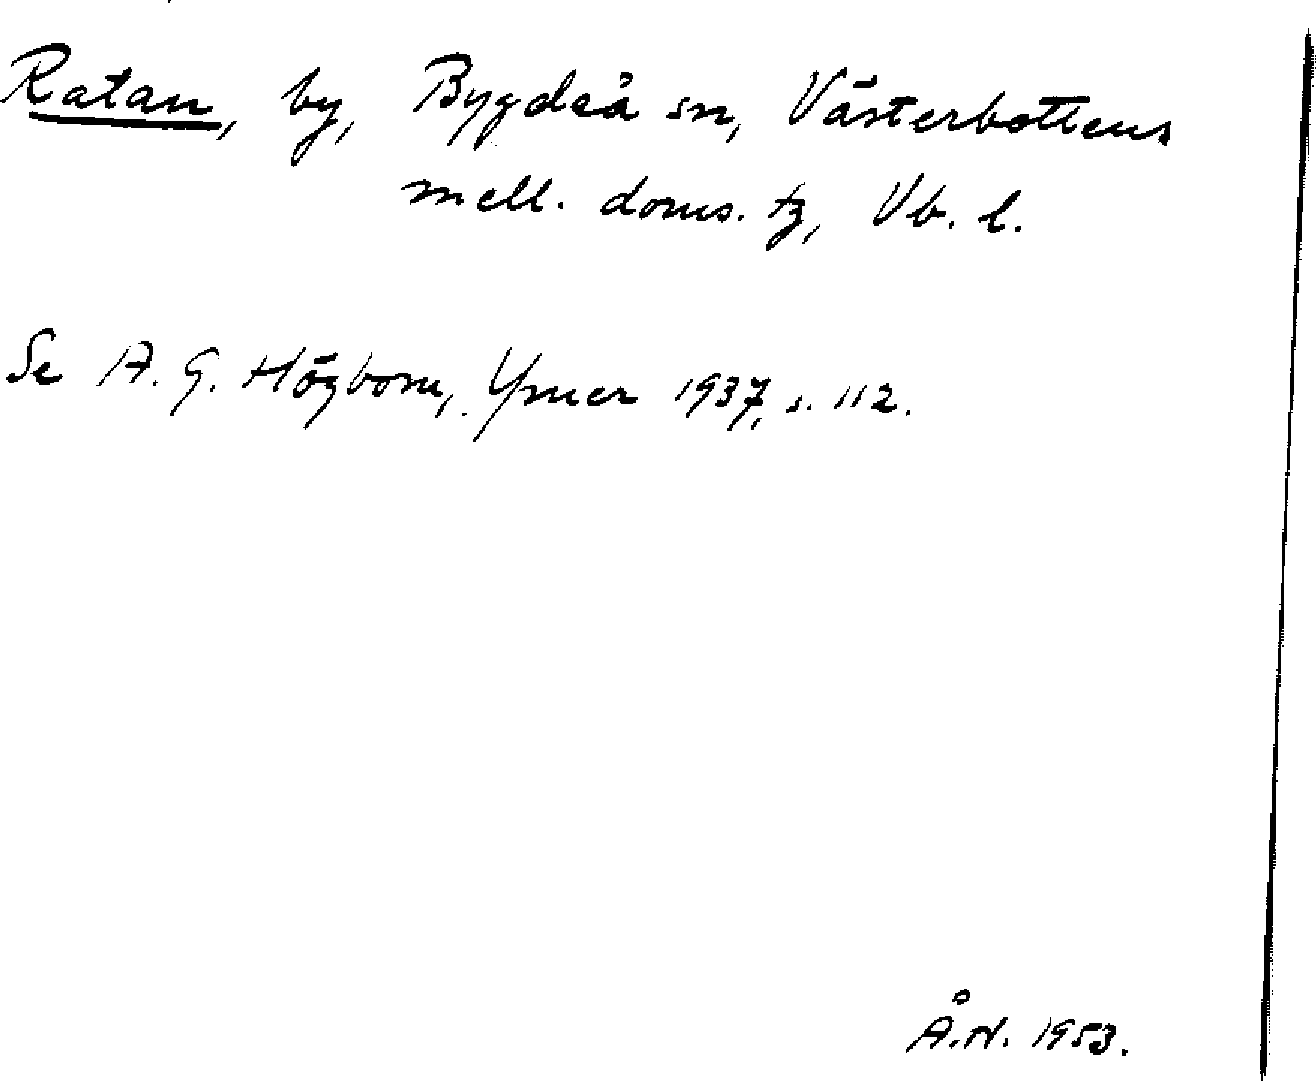 Ratan, by, Bygdeå sn, Västerbottens
mell. doms. tg, Vb. l.
Se A. G. Högbom, Ymer 1937, s. 112.
Å.N. 1953.